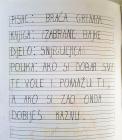 PISAC: BRAĆA GRIMM
KNJIGA: IZABRANE BAJKE
DJELO: SNJEGULJICA
POUKA: AKO SI DOBAR SVI
TE VOLE I POMAŽU TI,
A AKO SI ZAO ONDA
DOBIJEŠ KAZNU.